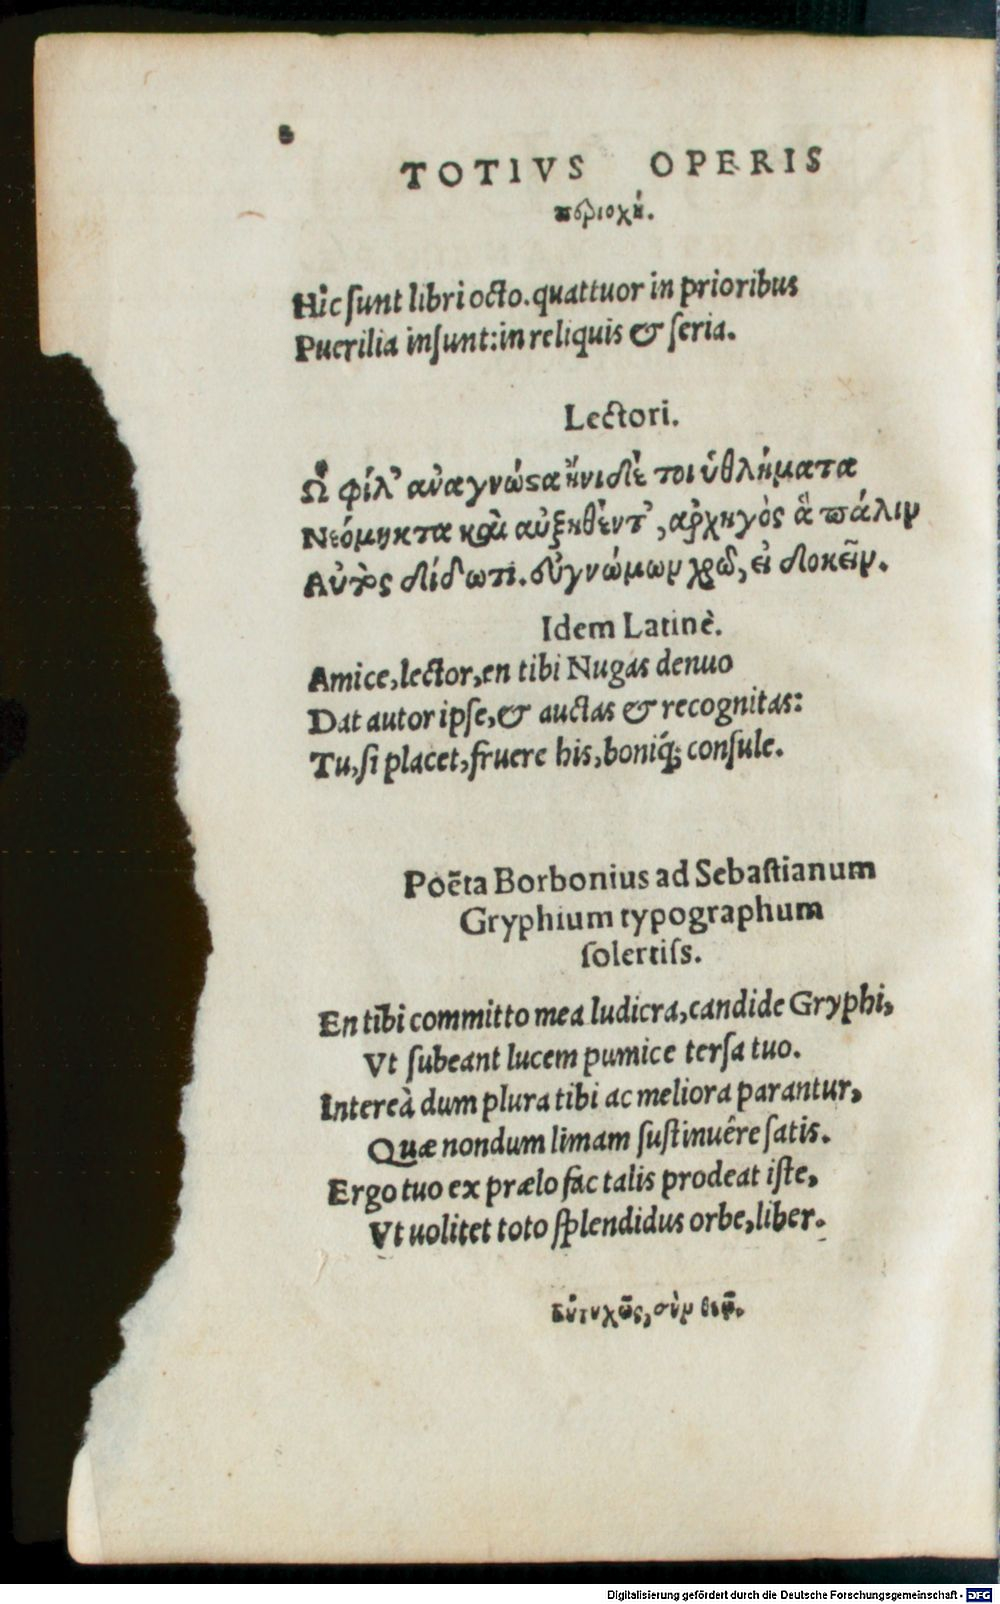 8
TOTIVS OPERIS
περιοχή.
Hic ſunt libri octo. quattuor in prioribus
Puerilia inſunt: in reliquis & ſeria.
Lectori.
Ὦ φίλ' ἀναγνώςα ἤνιδέ τοι ὑθλήματα
Νεόμηκτα καὶ αὐξηθέντ', ἀρχηγὸς ἃ πάλιν
Αὐτὸς δίδωτι. συγνώμων χρῶ, εἰ δοκεῖν.
Idem Latinè.
Amice, lector, en tibi Nugas denuo
Dat autor ipſe, & auctas & recognitas:
Tu, ſi placet, fruere his, boniq́; conſule.
Poēta Borbonius ad Sebaſtianum
Gryphium typographum
ſolertiſs.
En tibi committo mea ludicra, candide Gryphi,
Vt ſubeant lucem pumice terſa tuo.
Intereà dum plura tibi ac meliora parantur,
Quæ nondum limam ſuſtinuêre ſatis.
Ergo tuo ex prælo fac talis prodeat iſte,
Vt uolitet toto ſplendidus orbe, liber.
Εὐτυχῶς, σὺν θεῷ.
Digitalisierung gefördert durch die Deutsche Forschungsgemeinschaft - DFG